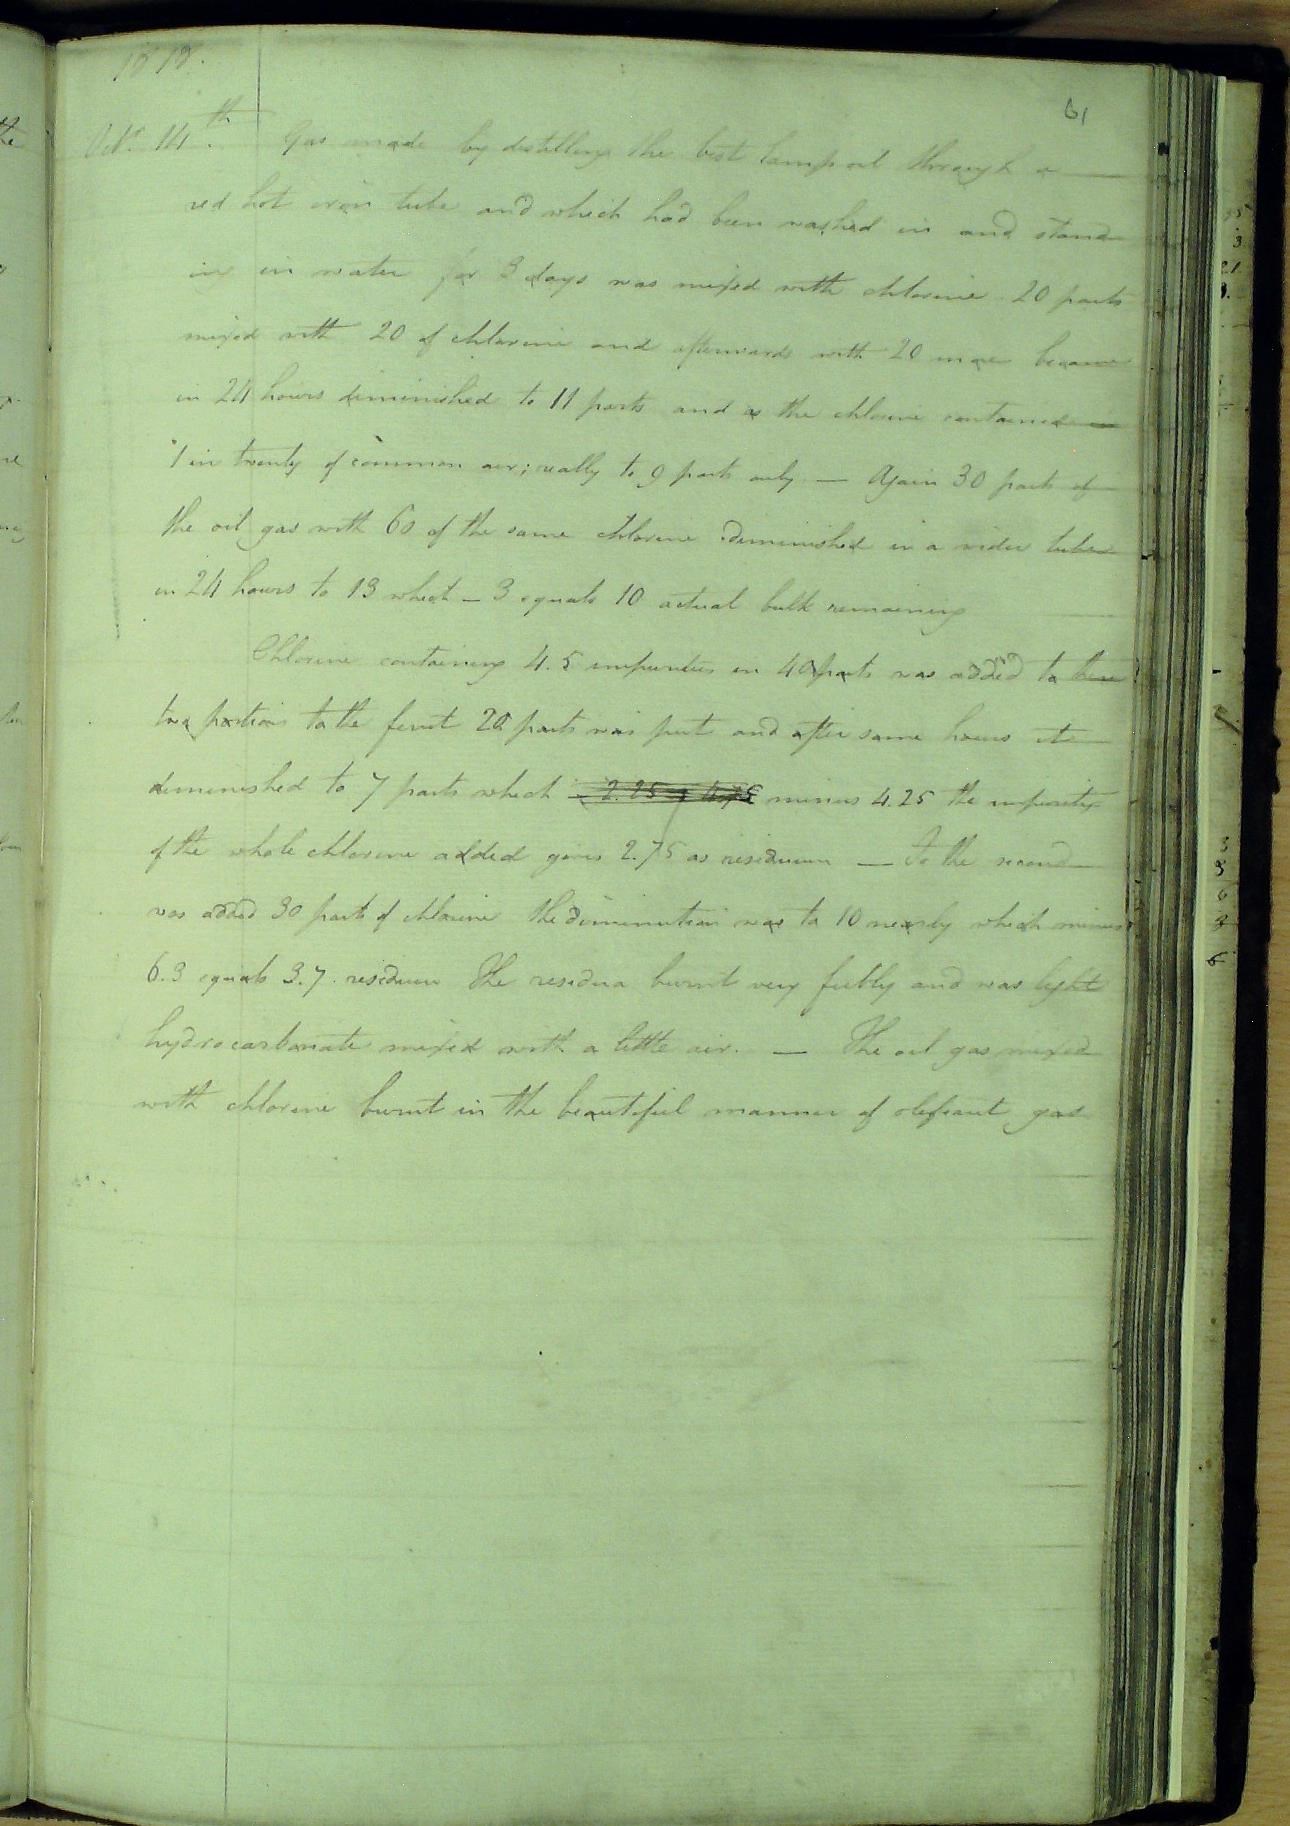 1818.
61
Octr. 14th. Gas made by distilling the best lamp oil through a
red hot iron tube and which had been washed in and stand
ing in water for 3 days was mixed with chlorine 20 parts
mixed with 20 of chlorine and afterwards with 20 more became
in 24 hours diminished to 11 parts and as the chlorine contained
1 in twenty of common air; really to 9 parts only — Again 30 parts of
the oil gas with 60 of the same chlorine diminished in a wider tube
in 24 hours to 13 which - 3 equals 10 actual bulk remaining
Chlorine containing 4.5 impurities in 40 parts was added to these
two portions to the first 20 parts was put and after some hours it
diminished to 7 parts which minus 4.25 the impurity
of the whole chlorine added gives 2.75 as residuum — To the second
was added 30 parts of chlorine the diminution was to 10 nearly which minus
6.3 equals 3.7. residuum The residua burnt very feebly and was light
hydrocarbonate mixed with a little air. — The oil gas mixed
with chlorine burnt in the beautiful manner of olefiant gas